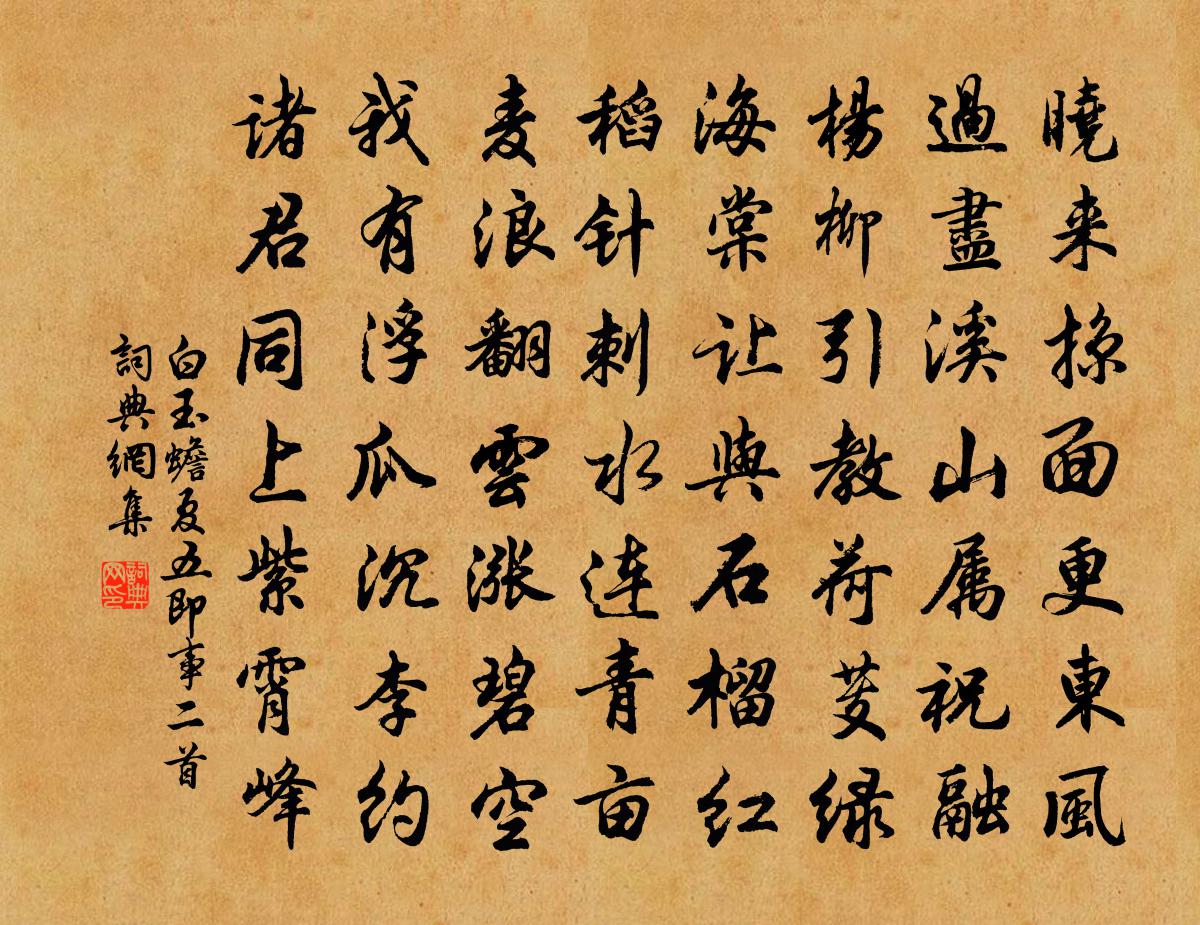 曉来掠面更東風
過盡溪山属祝融
楊柳引教荷芰绿
海棠让與石榴红
稻针刺水连青亩
麦浪翻雲涨碧空
我有浮瓜沉李约
诸君同上紫霄峰
白玉蟾夏五即事二首
詞典網集
詞典网印